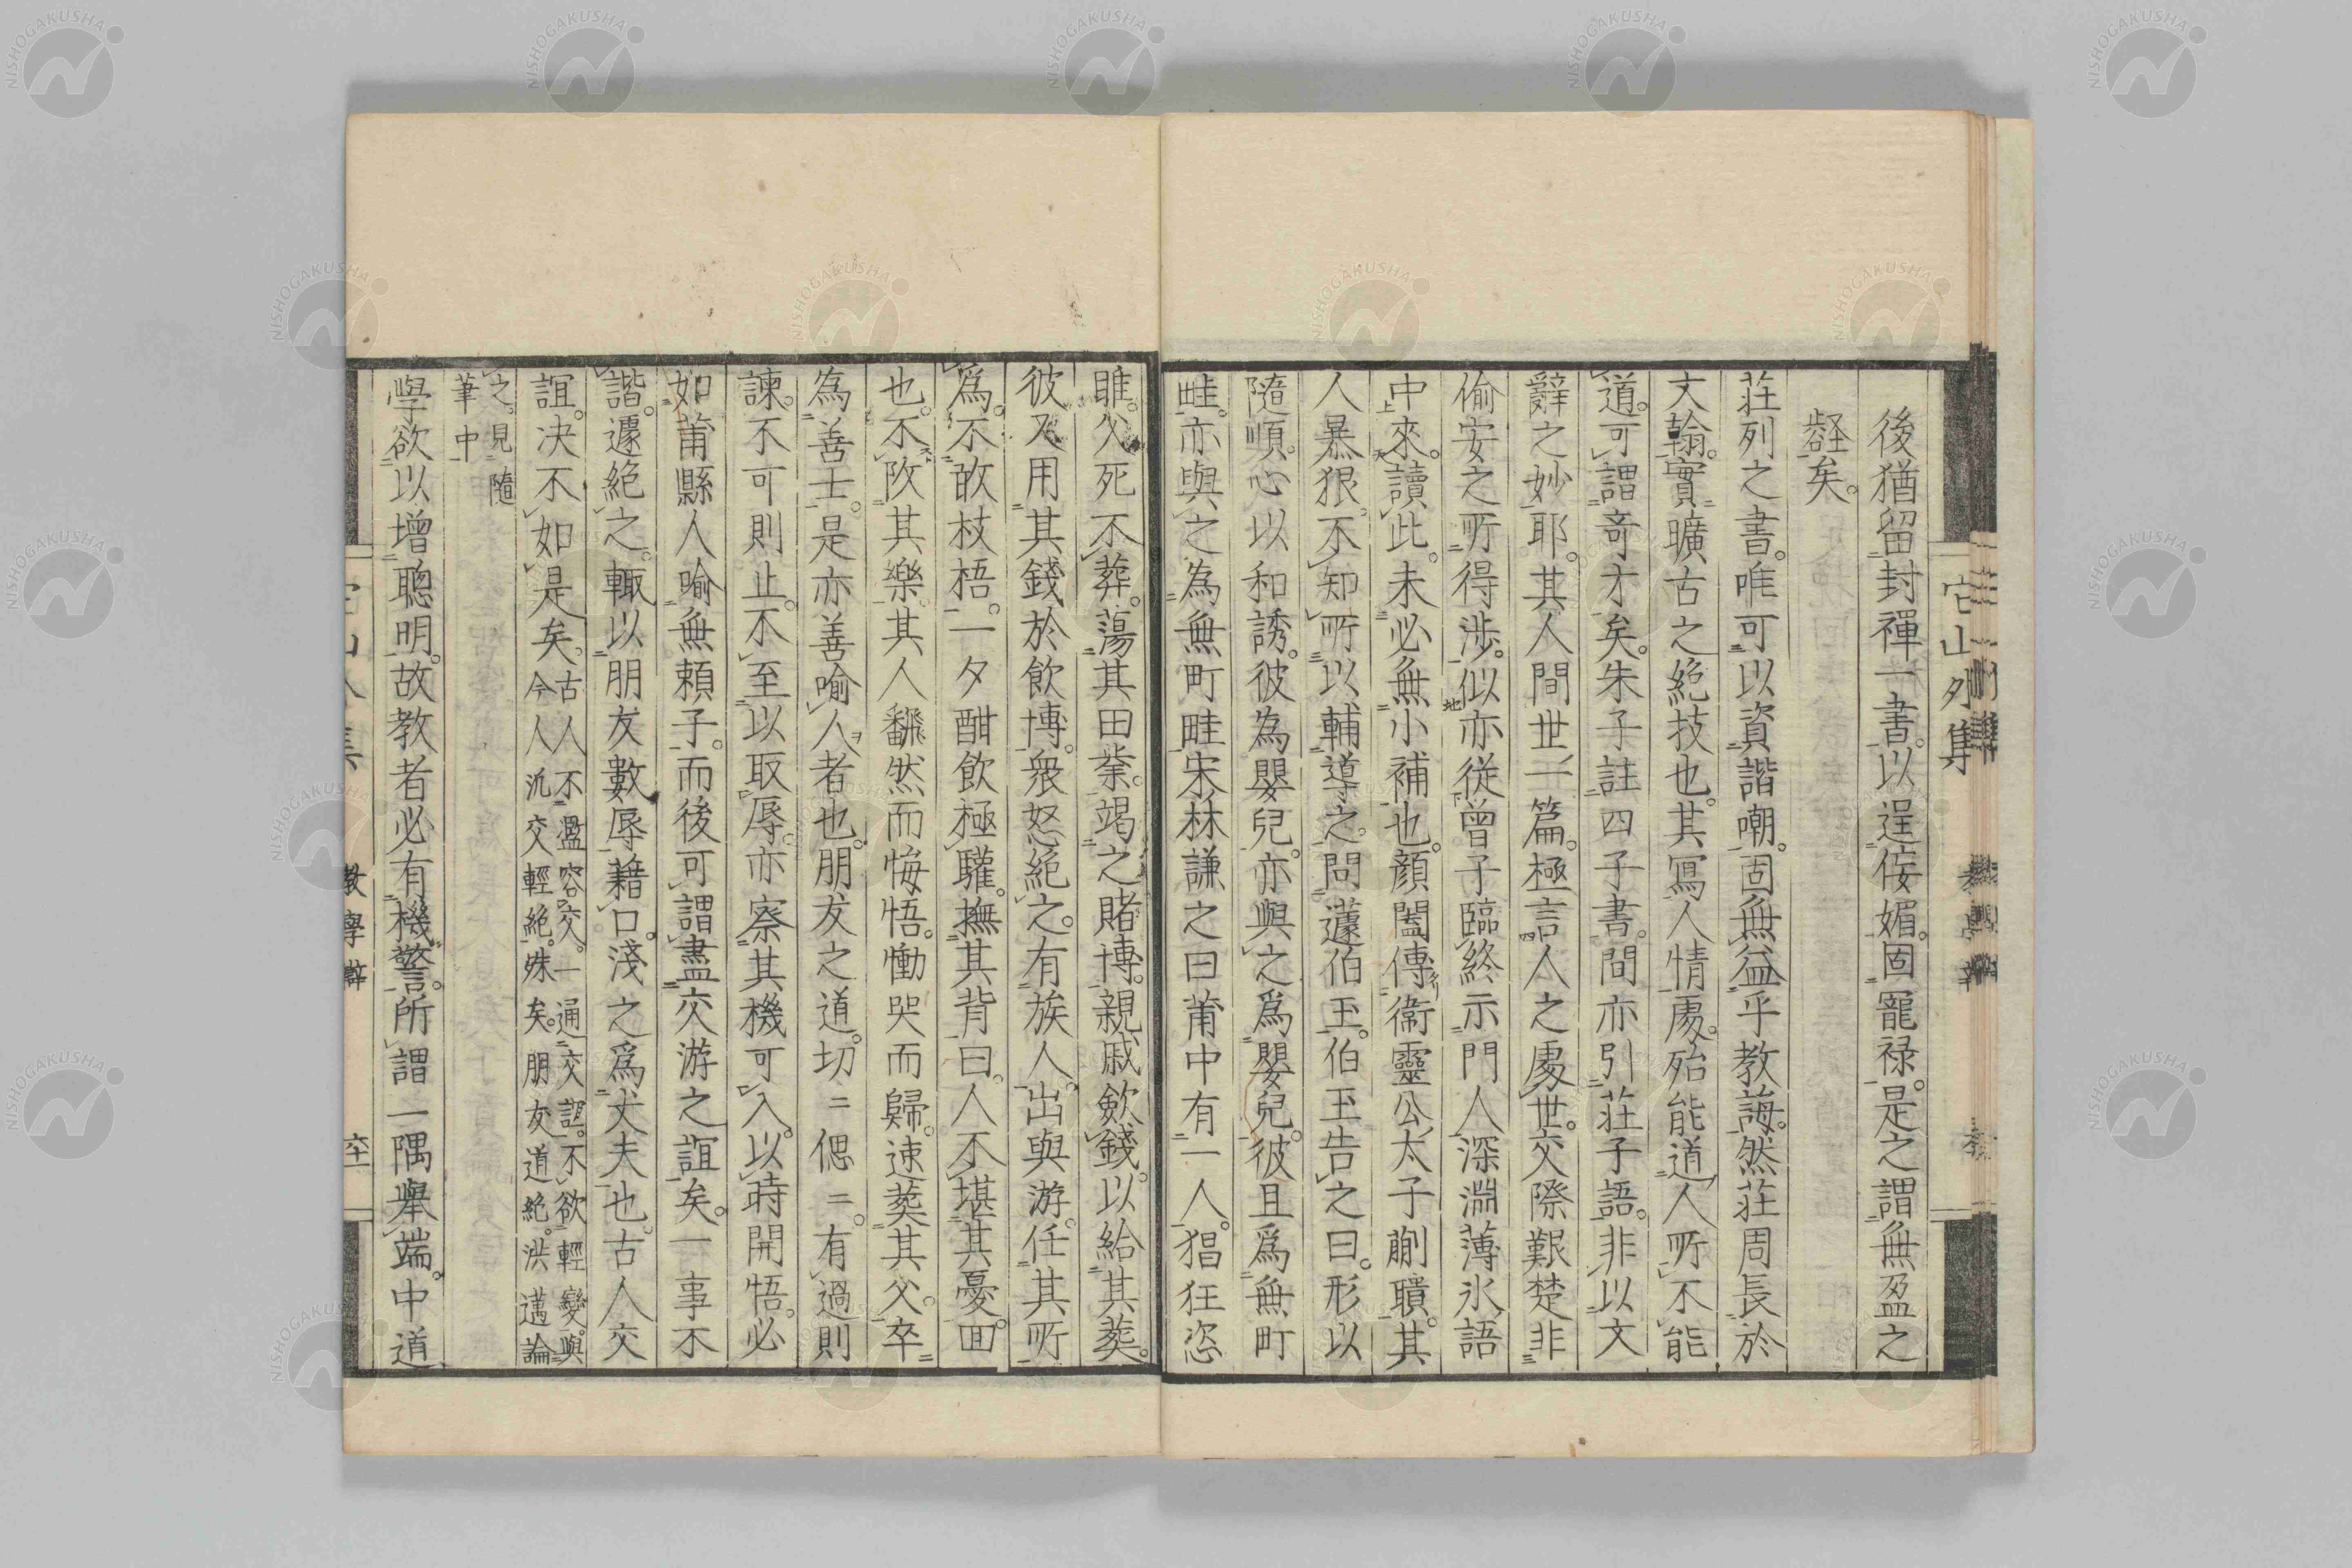 後猶留封禪一書。以逞侫媚。固寵祿。是之謂無盈之
壑矣。
莊列之書。唯可以資諧嘲。固無益乎教誨。然莊周長於
文翰。實曠古之絶技也。其寫人情處。殆能道人所不能
道。可謂奇才矣。朱子註四子書。間亦引莊子語。非以文
辭之妙耶。其人間世一篇。極言人之處世。交際艱楚。非
偷安之所得渉。似亦從曾子臨終示門人深淵薄氷語
中來。讀此。未必無小補也。顏闔傳衞靈公太子蒯聵。其
人暴狠。不知所以輔導之。問蘧伯玉。伯玉告之曰。形以
隨順。心以和誘。彼為嬰兒。亦與之爲嬰兒。彼且爲無町
畦。亦與之為無町畦宋林謙之曰莆中有一人。猖狂恣
睢。父死不葬。蕩其田業。竭之賭博。親戚歛錢。以給其葬。
彼又用其錢於飲博。衆怒絶之。有族人。出與游。任其所
爲。不敢枝梧。一夕酣飲極驩。撫其背曰。人不堪其憂。回
也。不改其樂。其人飜然而悔悟。慟哭而歸。速葬其父。卒
為善士。是亦善喻人者也。朋友之道。切〻偲〻。有過則
諫。不可則止。不至以取辱。亦察其機可入。以時開悟。必
如莆縣人喻無頼子。而後可謂盡交游之誼矣。一事不
諧。遽絶之。輙以朋友數辱藉口。淺之爲丈夫也。古人交
誼。决不如是矣。古人不盡容交。一通交誼。不欲輕變。與
今人汎交輕絶。殊矣。朋友道絶。洪邁論
之。見隨
筆中
學欲以增聰明。故教者必有機警。所謂一隅舉端。中道
它山外集
教學辭